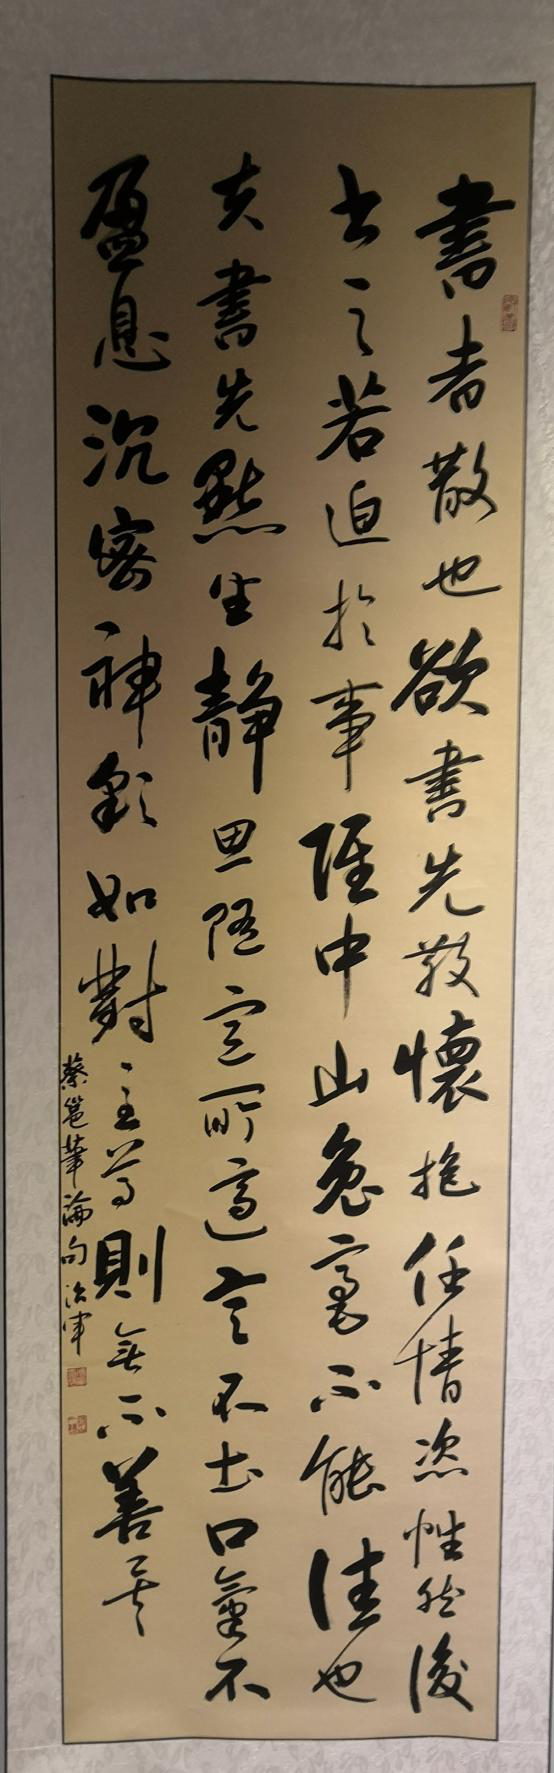 書者散也欲書先散懷抱任情恣性然後
书之若迫於事雖中山兔毫不能佳也
夫書先默坐静思隨意所適言不出口氣不
盈息沉密神彩如對至尊則無不善矣
蔡邕筆論句